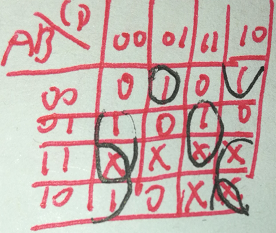 AB\CD 00 01 11 10
00 0 1 0 1
01 1 0 1 0
11 X X X X
10 1 0 X X